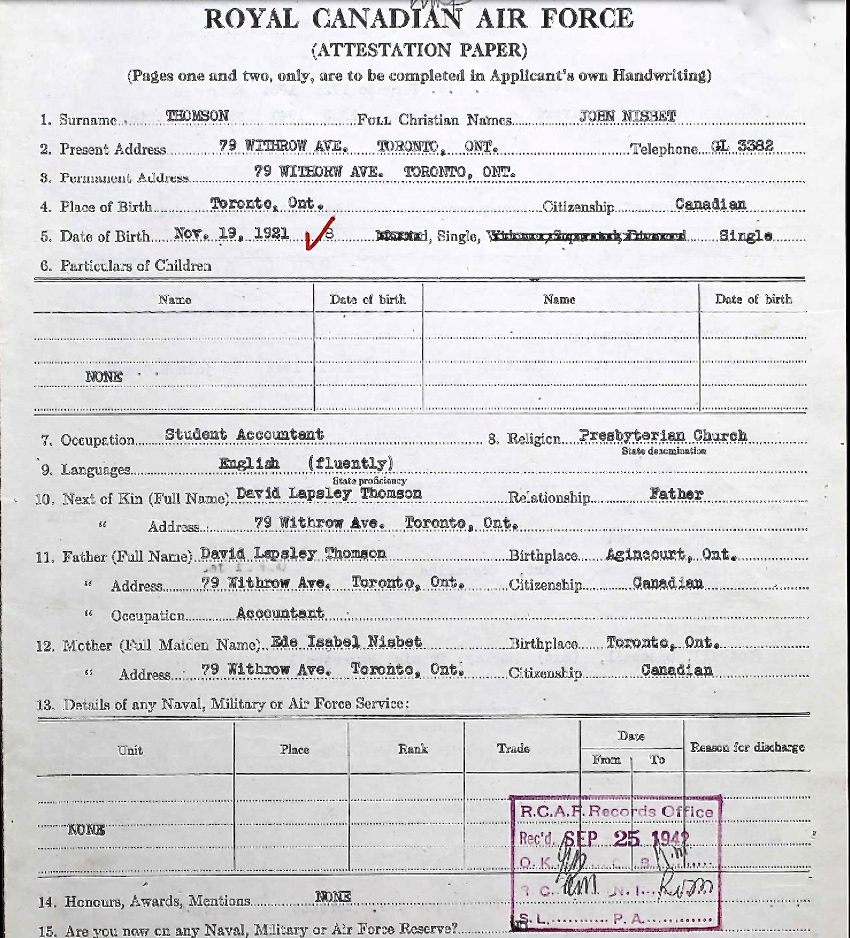 ROYAL CANADIAN AIR FORCE
(ATTESTATION PAPER)
(Pages one and two, only, are to be completed in Applicant's own Handwriting)
1. Surname THOMSON Full Christian Names JOHN NISBET
2. Present Address 79 WITHROW AVE. TORONTO, ONT. Telephone GL 3382
3. Permanent Address 79 WITHORW AVE. TORONTO, ONT.
4. Place of Birth Toronto, Ont. Citizenship Canadian
5. Date of Birth Nov. 19, 1921 Single, Single
6. Particulars of Children
Name Date of birth Name Date of birth
NONE
7. Occupation Student Accountant 8. Religion Presbyterian Church
State denomination
9. Languages English (fluently)
State proficiency
10. Next of Kin (Full Name) David Lapsley Thomson Relationship Father
" Address 79 Withrow Ave. Toronto, Ont.
11. Father (Full Name) David Lapsley Thomson Birthplace Agincourt, Ont.
" Address 79 Withrow Ave. Toronto, Ont. Citizenship Canadian
" Occupation Accountant
12. Mother (Full Maiden Name) Ede Isabel Nisbet Birthplace Toronto, Ont.
" Address 79 Withrow Ave. Toronto, Ont. Citizenship Canadian
13. Details of any Naval, Military or Air Force Service:
Unit Place Rank Trade Date Reason for discharge
From To
NONE
R.C.A.F. Records Office
Rec'd. SEP 25 1942
O.K.
N.I.
S.L. P.A.
14. Honours, Awards, Mentions NONE
15. Are you now on any Naval, Military or Air Force Reserve?